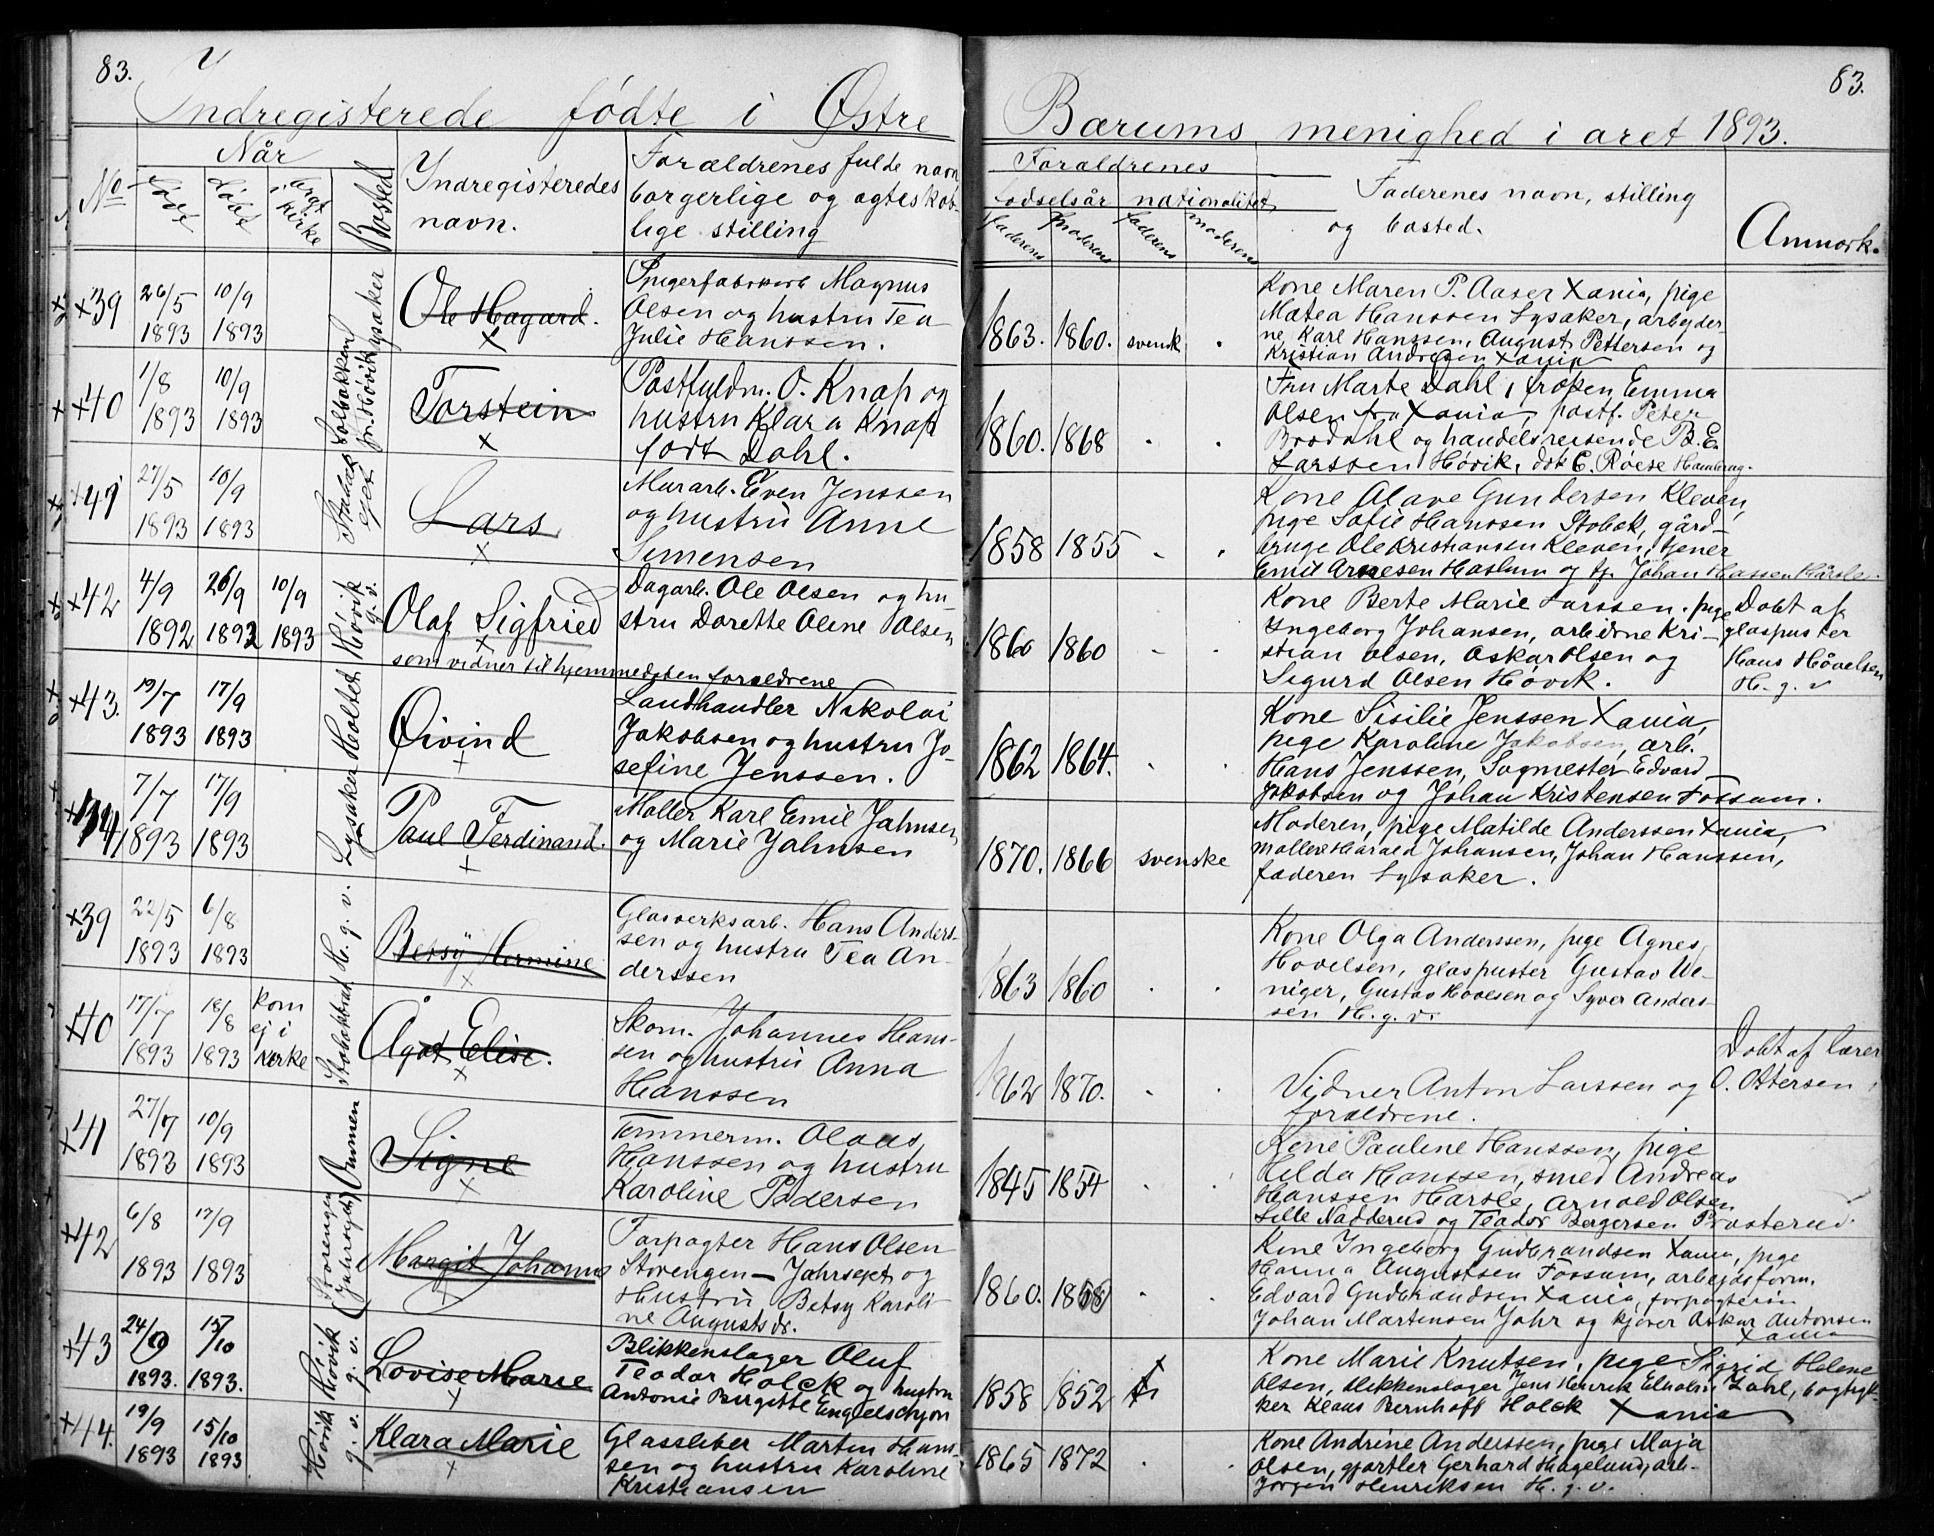 83.
Indregisterede fødte i Østre
No
Når
født
døbt
bragt i kirke
Bosted
Yndregisteredes
navn.
Foraldrenes fulde navn
borgerlige og agteskab-
lige stilling
x39
26/5
1893
10/9
1893
Lysaker
Ole Hagard.
Spigerfabrkarb Magnus
Olsen og hustru Tea
Julie Hanssen.
x40
1/8
1893
10/9
1893
Solbakken
pr. Høvik
Torstein
Postfuldm. O. Knap og
hustru Klara Knap
født Dahl.
x41
27/5
1893
10/9
1893
Stabæk
ejet
Lars
Murarb. Even Jenssen
og hustru Anne
Simensen
x42
4/9
1892
26/9
1892
10/9
1893
Høvik
g. v.
Olaf Sigfried
Dagarb. Ole Olsen og hu-
stru Dorette Oline Olsen
som vidner til hjemmedøben forældrene
x43.
19/7
1893
17/9
1893
Holtet
Øivind
Landhandler Nikolai
Jakobsen og hustru Jo-
sefine Jenssen.
7/7
1893
17/9
1893
Lysaker
Paul Ferdinand.
Møller Karl Emil Jahnsen
og Marie Jahnsen
x39
22/5
1893
6/8
1893
H. g. v.
Betsy Hermine
Glasverksarb. Hans Anders-
sen og hustru Tea An-
derssen
x40
17/7
1893
18/8
1893
kom
ej i
kirke
Stabækkrad
Ågot Elise.
Skom. Johannes Hans-
sen og hustru Anna
Hanssen
x41
27/7
1893
10/9
1893
Signe
Tømmerm. Olaus
Hanssen og hustru
Karoline Pedersen
x42
6/8
1893
17/9
1893
Storengen
(Jahrsejet)
Margit Johanne
Forpagter Hans Olsen
Storengen — Jahrsejet og
Hustru Betsy Karoli-
ne Augustsdr.
x43
24/9
1893.
15/10
1893.
Høvik
g. v.
Lovise Marie
Blikkenslager Oluf
Teodor Holck og hustru
Antonie Birgitte Engelschjøn
x44.
19/9
1893
15/10
1893
Høvik
g. v.
Klara Marie
Glassliber Martin Hans-
sen og hustru Karoline
Kristiansen
83.
Bærums menighed i året 1893.
Foraldrenes
fødselsår
nationalitet
faderens
moderens
faderens
moderens
Fadernes navn, stilling
og bosted.
Anmærk.
1863.
1860.
svensk
Kone Maren P. Aaser Xania, pige
Matea Hanssen Lysaker, arbejder-
ne Karl Hanssen, August Pettersen og
Kristian Andresen Xania
1860.
1868
Fru Marte Dahl, frøken Emma
Olsen fra Xania, postf. Peter
Brodahl og handelsreisende B. E.
Larssen Høvik, dok E. Røese Hamburg.
1858
1855
Kone Olave Gundersen Kleven,
pige Sofie Hanssen Stabæk, gård-
bruge Ole Kristiansen Kleven, tjener
Emil Arnesen Haslum og tj. Johan Hassen Hårsle.
1860
1860
Kone Berte Marie Larssen, pige
Ingeborg Johansen, arbeiderne Kri-
stian Olsen, Oskar Olsen og
Sigurd Olsen Høvik.
Døbt af
glaspuster
Hans Håvelsen
H. g. v
1862
1864.
Kone Sisilie Jenssen Xania,
pige Karoline Jakobsen, arb.
Hans Jenssen, Sagmester Edvard
Jakobsen og Johan Kristensen Fossum.
1870.
1866
svenske
Moderen, pige Matilde Anderssen Xania,
møllere Harald Johansen, Johan Hanssen,
faderen Lysaker.
1863
1860
Kone Olga Anderssen, pige Agnes
Hovelsen, glaspuster Gustav We-
niger, Gustav Hovelsen og Syver Anders-
sen H. g. v.
1862
1870.
Vidner Anton Larssen og
forældrene.
Døbt af lærer
O. Ottersen
1845
1854
Kone Pauline Hanssen, pige
Hilda Hanssen, smed Andreas
Hanssen Harsle, Arnold Olsen
Lille Nadderud og Teodor Bergersen Prosterud.
1860.
Kone Ingeborg Gudbrandsen Xania, pige
Hanna Augustsen Fossum, arbejdsform.
Edvard Gudbrandsen Xania, forpagteren
Johan Martensen Jahr og kjører Oskar Antonsen
Xania
1858
1852
Kone Marie Knutsen, pige Sigrid Helene
Olsen, blikkenslager Jens Henrik Elholm Dahl, bogtryk-
ker Klaus Bernhoft Holck Xania
1865
1872
Kone Andrine Anderssen, pige Maja
Olsen, gjørtler Gerhard Hagelund, arb.
Jørgen Henriksen H. g. v.